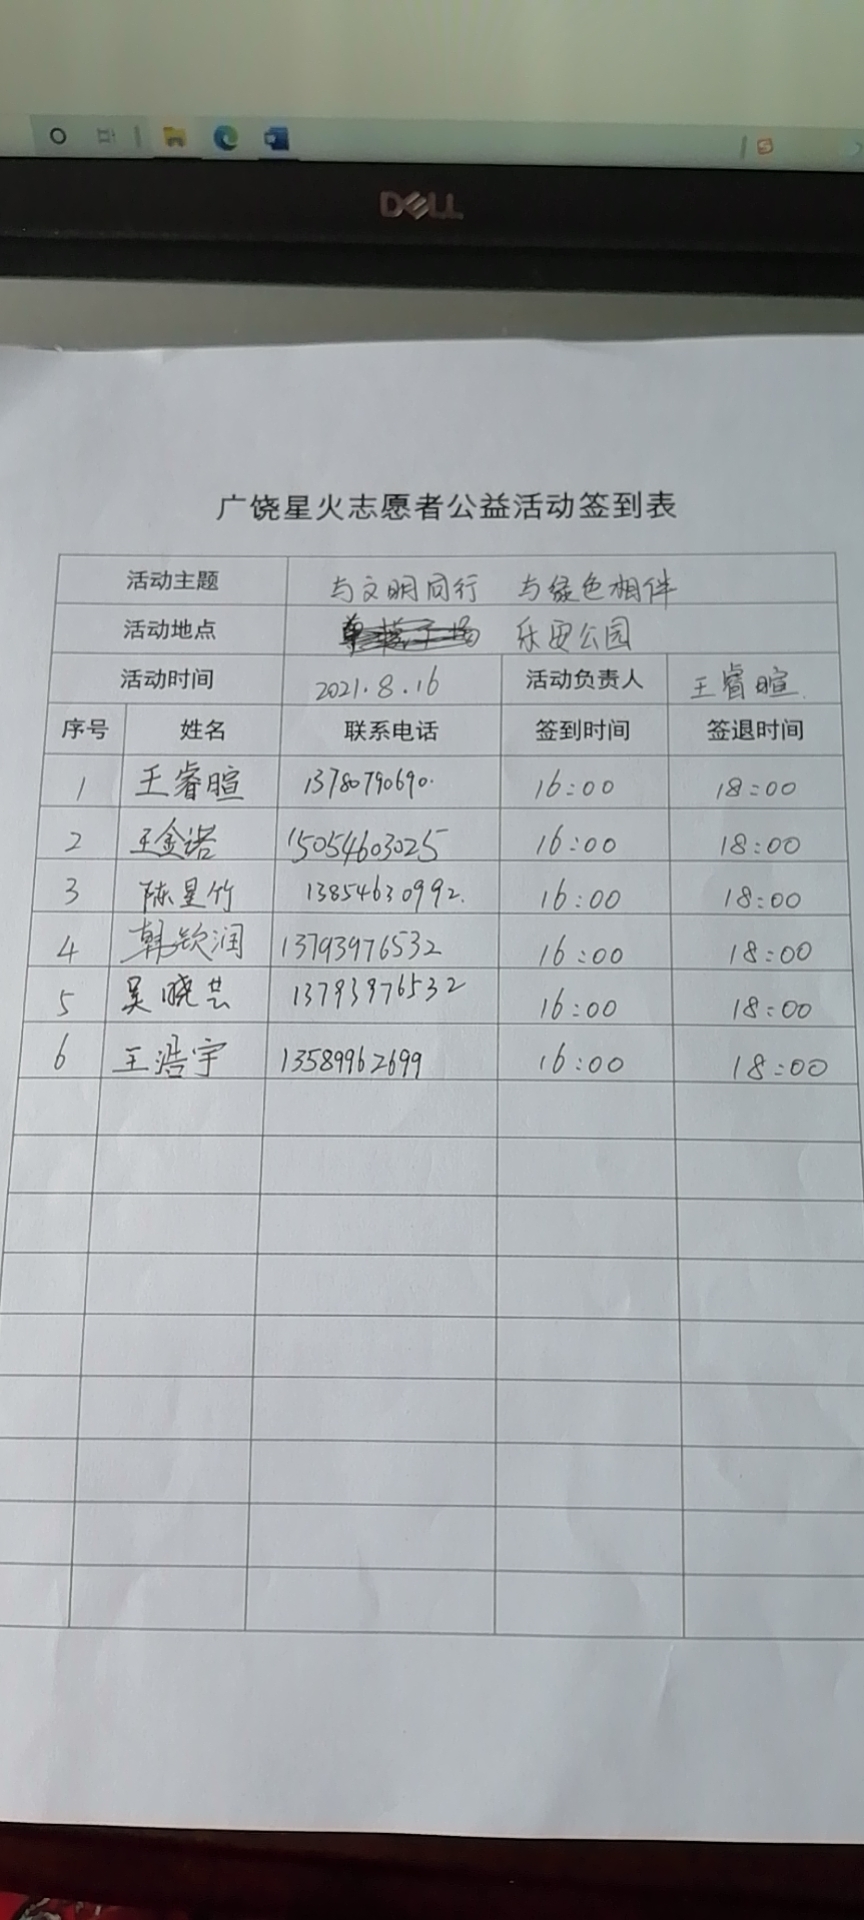 DELL
广饶星火志愿者公益活动签到表
活动主题 与文明同行 与绿色相伴
活动地点 乐安公园
活动时间 2021.8.16 活动负责人 王睿暄
序号 姓名 联系电话 签到时间 签退时间
1 王睿暄 13780790690 16:00 18:00
2 王金诺 15054603025 16:00 18:00
3 陈星竹 13854630992 16:00 18:00
4 韩欣润 13793976532 16:00 18:00
5 吴晓芸 13793976532 16:00 18:00
6 王浩宇 13589962699 16:00 18:00